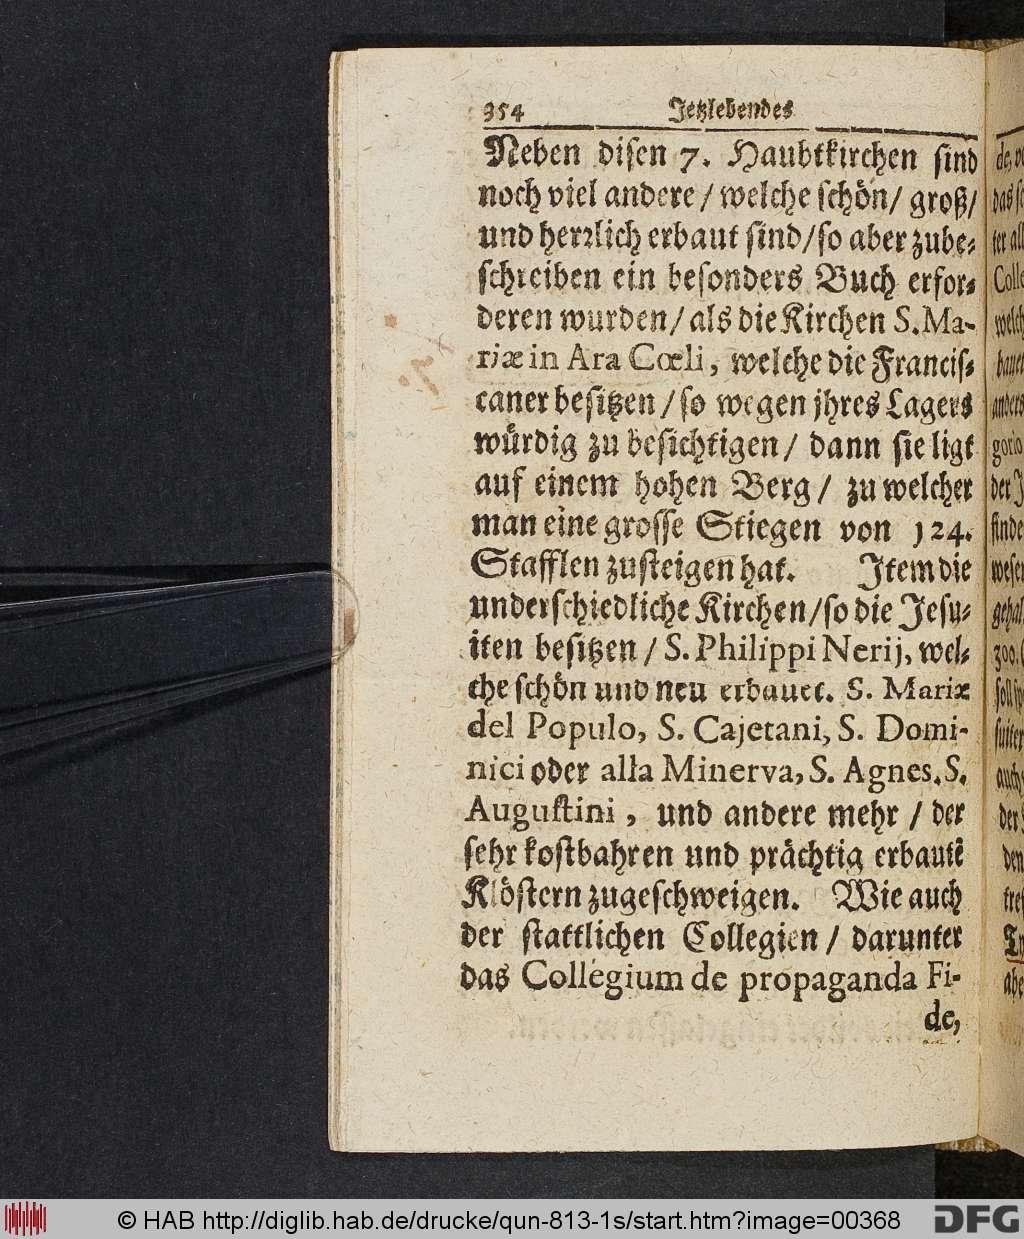 354 Jetzlebendes
Neben disen 7. Haubtkirchen sind
noch viel andere / welche schön / groß /
und herrlich erbaut sind / so aber zube-
schreiben ein besonders Buch erfor-
deren wurden / als die Kirchen S. Ma-
riæ in Ara Cœli, welche die Francis-
caner besitzen / so wegen jhres Lagers
würdig zu besichtigen / dann sie ligt
auf einem hohen Berg / zu welcher
man eine grosse Stiegen von 124.
Stafflen zusteigen hat. Item die
underschiedliche Kirchen / so die Jesu-
iten besitzen / S. Philippi Nerij, wel-
che schön und neu erbauet. S. Mariæ
del Populo, S. Cajetani, S. Domi-
nici oder alla Minerva, S. Agnes. S.
Augustini, und andere mehr / der
sehr kostbahren und prächtig erbautē
Klöstern zugeschweigen. Wie auch
der stattlichen Collegien / darunter
das Collegium de propaganda Fi-
de,
© HAB http://diglib.hab.de/drucke/qun-813-1s/start.htm?image=00368
DFG